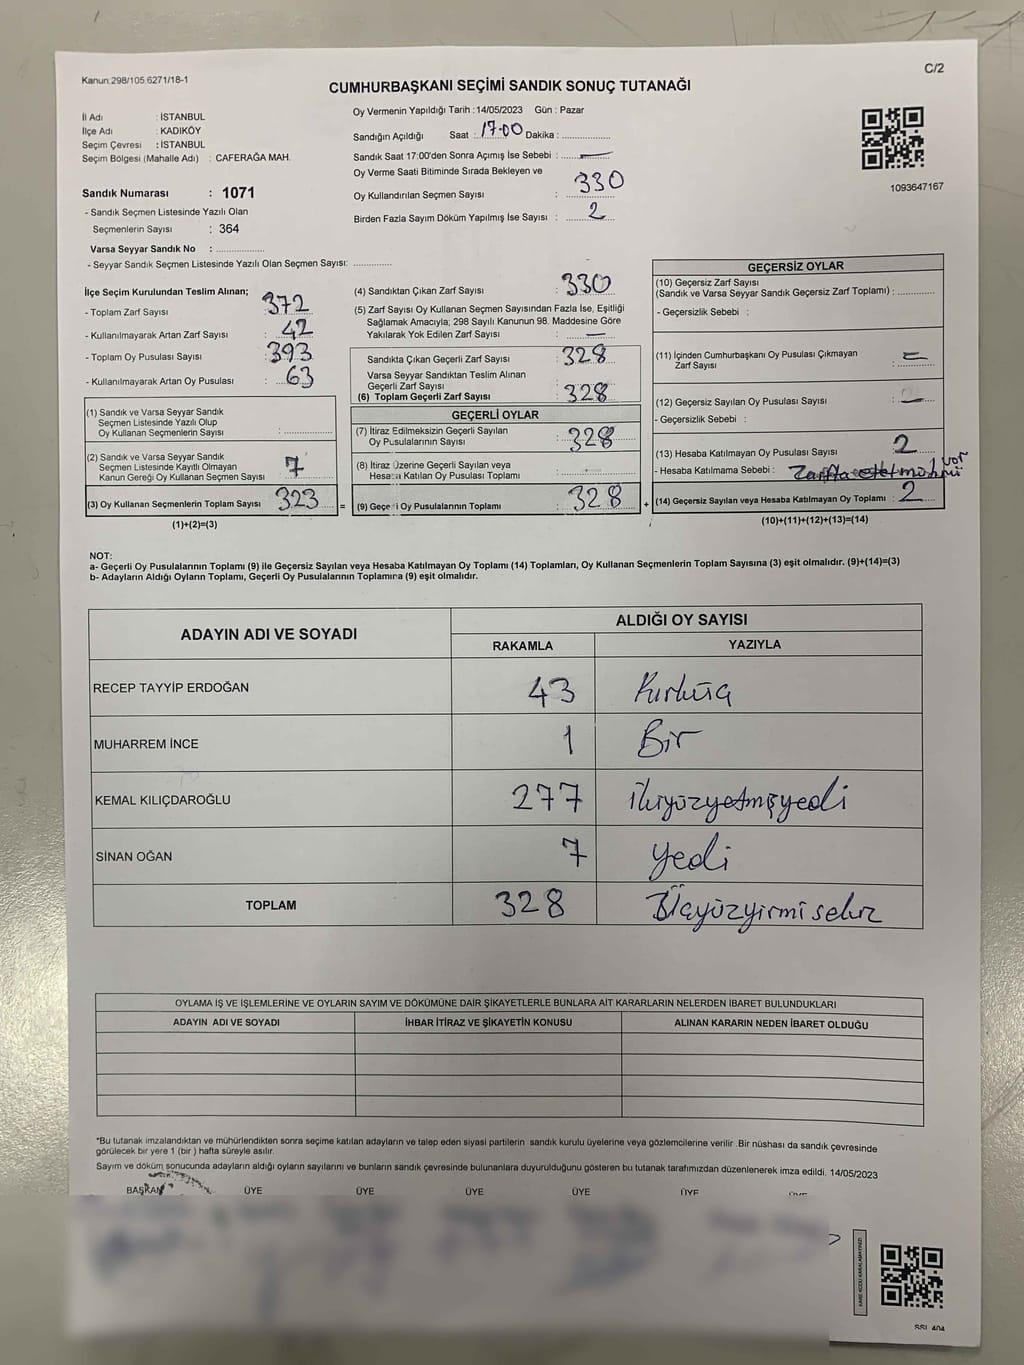 Kanun:298/105.6271/18-1
C/2
CUMHURBAŞKANI SEÇİMİ SANDIK SONUÇ TUTANAĞI
İl Adı : İSTANBUL
İlçe Adı : KADIKÖY
Seçim Çevresi : İSTANBUL
Seçim Bölgesi (Mahalle Adı) : CAFERAĞA MAH.
Sandık Numarası : 1071
- Sandık Seçmen Listesinde Yazılı Olan
Seçmenlerin Sayısı : 364
Varsa Seyyar Sandık No : ................
- Seyyar Sandık Seçmen Listesinde Yazılı Olan Seçmen Sayısı: .............
Oy Vermenin Yapıldığı Tarih : 14/05/2023 Gün : Pazar
Sandığın Açıldığı Saat : 17.00 Dakika : ................
Sandık Saat 17:00'den Sonra Açımış İse Sebebi : —
Oy Verme Saati Bitiminde Sırada Bekleyen ve
Oy Kullandırılan Seçmen Sayısı : 330
Birden Fazla Sayım Döküm Yapılmış İse Sayısı : 2
1093647167
İlçe Seçim Kurulundan Teslim Alınan;
- Toplam Zarf Sayısı : 372
- Kullanılmayarak Artan Zarf Sayısı : 42
- Toplam Oy Pusulası Sayısı : 393
- Kullanılmayarak Artan Oy Pusulası : 63
(1) Sandık ve Varsa Seyyar Sandık
Seçmen Listesinde Yazılı Olup
Oy Kullanan Seçmenlerin Sayısı : ................
(2) Sandık ve Varsa Seyyar Sandık
Seçmen Listesinde Kayıtlı Olmayan
Kanun Gereği Oy Kullanan Seçmen Sayısı : 7
(3) Oy Kullanan Seçmenlerin Toplam Sayısı : 323 =
(1)+(2)=(3)
(4) Sandıktan Çıkan Zarf Sayısı : 330
(5) Zarf Sayısı Oy Kullanan Seçmen Sayısından Fazla İse, Eşitliği
Sağlamak Amacıyla; 298 Sayılı Kanunun 98. Maddesine Göre
Yakılarak Yok Edilen Zarf Sayısı : —
Sandıkta Çıkan Geçerli Zarf Sayısı : 328
Varsa Seyyar Sandıktan Teslim Alınan
Geçerli Zarf Sayısı
(6) Toplam Geçerli Zarf Sayısı : 328
GEÇERLİ OYLAR
(7) İtiraz Edilmeksizin Geçerli Sayılan
Oy Pusulalarının Sayısı : 328
(8) İtiraz Üzerine Geçerli Sayılan veya
Hesaba Katılan Oy Pusulası Toplamı :
(9) Geçerli Oy Pusulalarının Toplamı : 328 +
GEÇERSİZ OYLAR
(10) Geçersiz Zarf Sayısı
(Sandık ve Varsa Seyyar Sandık Geçersiz Zarf Toplamı) : ............
- Geçersizlik Sebebi :
(11) İçinden Cumhurbaşkanı Oy Pusulası Çıkmayan
Zarf Sayısı : —
(12) Geçersiz Sayılan Oy Pusulası Sayısı : —
- Geçersizlik Sebebi :
(13) Hesaba Katılmayan Oy Pusulası Sayısı : 2
- Hesaba Katılmama Sebebi : Zarfta var
(14) Geçersiz Sayılan veya Hesaba Katılmayan Oy Toplamı : 2
(10)+(11)+(12)+(13)=(14)
NOT:
a- Geçerli Oy Pusulalarının Toplamı (9) ile Geçersiz Sayılan veya Hesaba Katılmayan Oy Toplamı (14) Toplamları, Oy Kullanan Seçmenlerin Toplam Sayısına (3) eşit olmalıdır. (9)+(14)=(3)
b- Adayların Aldığı Oyların Toplamı, Geçerli Oy Pusulalarının Toplamına (9) eşit olmalıdır.
ADAYIN ADI VE SOYADI
ALDIĞI OY SAYISI
RAKAMLA YAZIYLA
RECEP TAYYİP ERDOĞAN 43 Kırküç
MUHARREM İNCE 1 Bir
KEMAL KILIÇDAROĞLU 277 ikiyüzyetmişyedi
SİNAN OĞAN 7 yedi
TOPLAM 328 Üçyüzyirmi sekiz
OYLAMA İŞ VE İŞLEMLERİNE VE OYLARIN SAYIM VE DÖKÜMÜNE DAİR ŞİKAYETLERLE BUNLARA AİT KARARLARIN NELERDEN İBARET BULUNDUKLARI
ADAYIN ADI VE SOYADI İHBAR İTİRAZ VE ŞİKAYETİN KONUSU ALINAN KARARIN NEDEN İBARET OLDUĞU
*Bu tutanak imzalandıktan ve mühürlendikten sonra seçime katılan adayların ve talep eden siyasi partilerin sandık kurulu üyelerine veya gözlemcilerine verilir .Bir nüshası da sandık çevresinde
görülecek bir yere 1 (bir ) hafta süreyle asılır.
Sayım ve döküm sonucunda adayların aldığı oyların sayılarını ve bunların sandık çevresinde bulunanlara duyurulduğunu gösteren bu tutanak tarafımızdan düzenlenerek imza edildi. 14/05/2023
BAŞKAN ÜYE ÜYE ÜYE ÜYE ÜYE